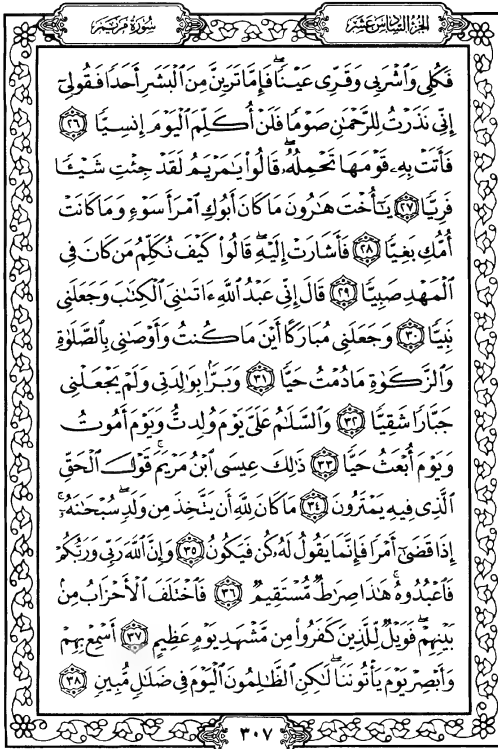 الجزء السادس عشر
سورة مريم
فَكُلِي وَٱشْرَبِي وَقَرِّي عَيْنًاۖ فَإِمَّا تَرَيِنَّ مِنَ ٱلْبَشَرِ أَحَدًا فَقُولِيٓ
إِنِّي نَذَرْتُ لِلرَّحْمَٰنِ صَوْمًا فَلَنْ أُكَلِّمَ ٱلْيَوْمَ إِنسِيًّا ٢٦
فَأَتَتْ بِهِۦ قَوْمَهَا تَحْمِلُهُۥۖ قَالُوا۟ يَٰمَرْيَمُ لَقَدْ جِئْتِ شَيْـًٔا
فَرِيًّا ٢٧ يَٰٓأُخْتَ هَٰرُونَ مَا كَانَ أَبُوكِ ٱمْرَأَ سَوْءٍ وَمَا كَانَتْ
أُمُّكِ بَغِيًّا ٢٨ فَأَشَارَتْ إِلَيْهِۖ قَالُوا۟ كَيْفَ نُكَلِّمُ مَن كَانَ فِي
ٱلْمَهْدِ صَبِيًّا ٢٩ قَالَ إِنِّي عَبْدُ ٱللَّهِ ءَاتَىٰنِيَ ٱلْكِتَٰبَ وَجَعَلَنِي
نَبِيًّا ٣٠ وَجَعَلَنِي مُبَارَكًا أَيْنَ مَا كُنتُ وَأَوْصَٰنِي بِٱلصَّلَوٰةِ
وَٱلزَّكَوٰةِ مَا دُمْتُ حَيًّا ٣١ وَبَرًّۢا بِوَٰلِدَتِي وَلَمْ يَجْعَلْنِي
جَبَّارًا شَقِيًّا ٣٢ وَٱلسَّلَٰمُ عَلَيَّ يَوْمَ وُلِدتُّ وَيَوْمَ أَمُوتُ
وَيَوْمَ أُبْعَثُ حَيًّا ٣٣ ذَٰلِكَ عِيسَى ٱبْنُ مَرْيَمَۚ قَوْلَ ٱلْحَقِّ
ٱلَّذِي فِيهِ يَمْتَرُونَ ٣٤ مَا كَانَ لِلَّهِ أَن يَتَّخِذَ مِن وَلَدٍۖ سُبْحَٰنَهُۥٓۚ
إِذَا قَضَىٰٓ أَمْرًا فَإِنَّمَا يَقُولُ لَهُۥ كُن فَيَكُونُ ٣٥ وَإِنَّ ٱللَّهَ رَبِّي وَرَبُّكُمْ
فَٱعْبُدُوهُۚ هَٰذَا صِرَٰطٌ مُّسْتَقِيمٌ ٣٦ فَٱخْتَلَفَ ٱلْأَحْزَابُ مِنۢ
بَيْنِهِمْۖ فَوَيْلٌ لِّلَّذِينَ كَفَرُوا۟ مِن مَّشْهَدِ يَوْمٍ عَظِيمٍ ٣٧ أَسْمِعْ بِهِمْ
وَأَبْصِرْ يَوْمَ يَأْتُونَنَاۖ لَٰكِنِ ٱلظَّٰلِمُونَ ٱلْيَوْمَ فِي ضَلَٰلٍ مُّبِينٍ ٣٨
٣٠٧